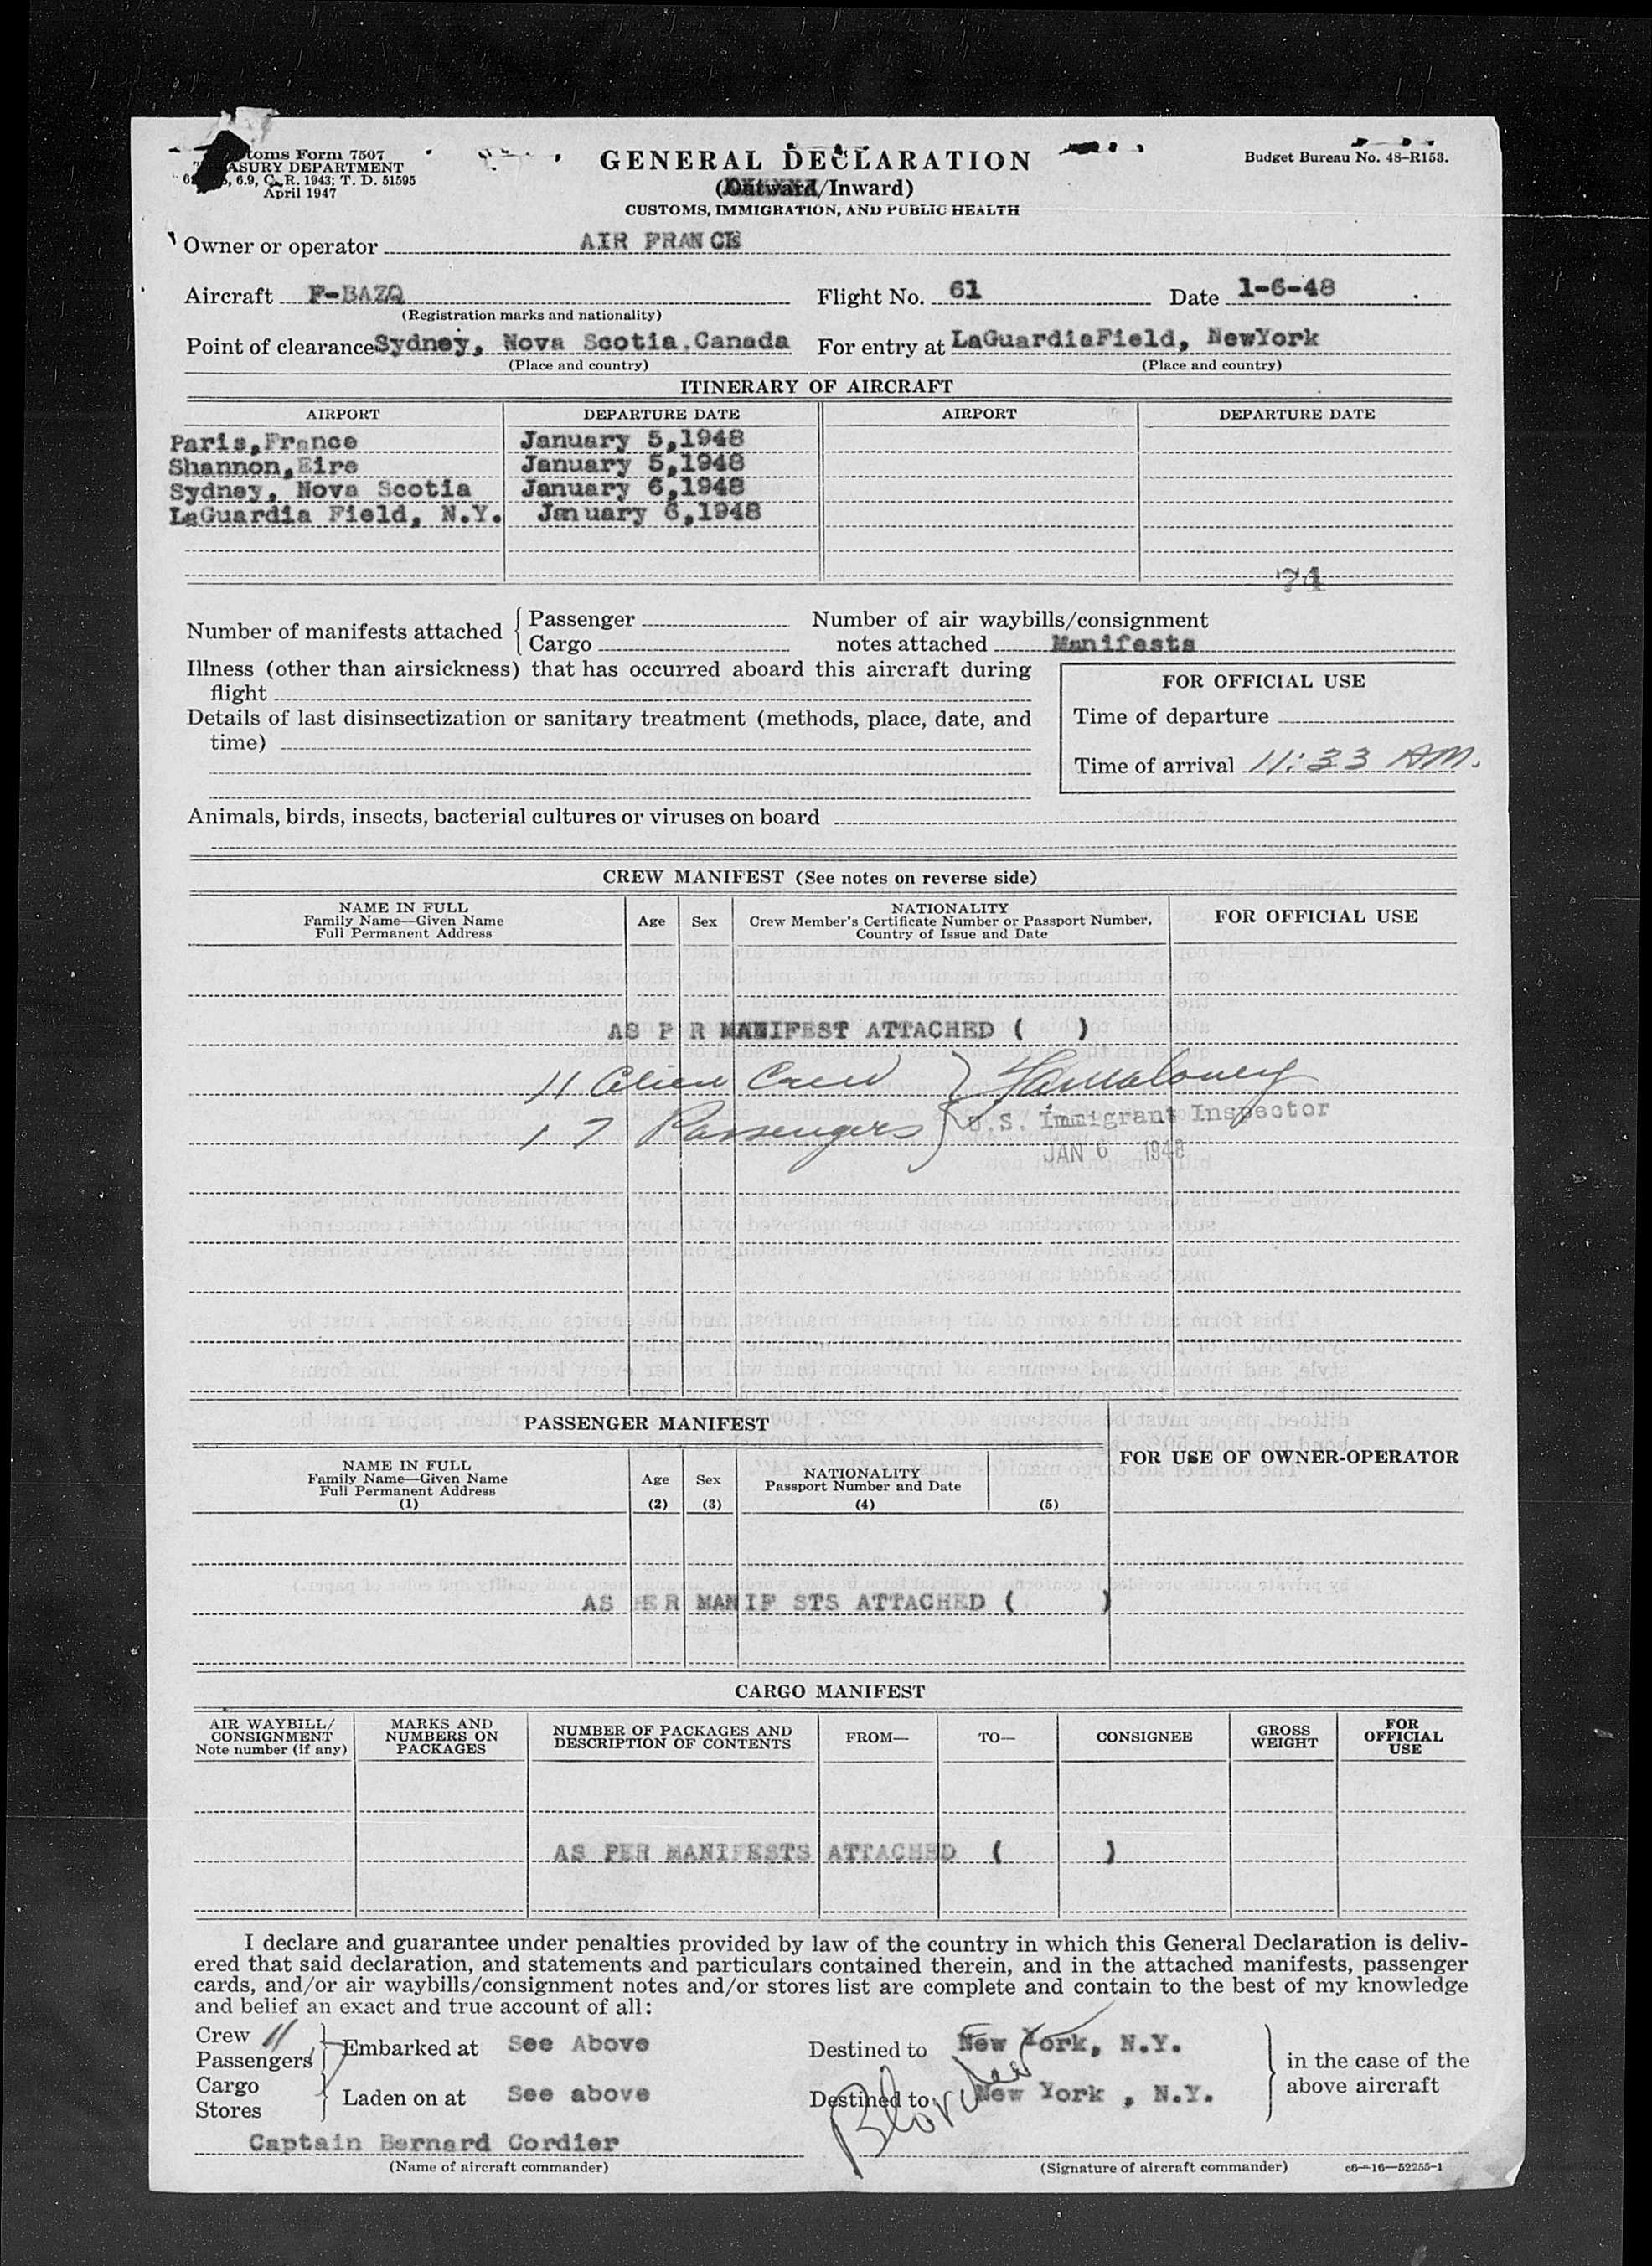 toms Form 7507
ASURY DEPARTMENT
6.9, C. R. 1943; T. D. 51595
April 1947
GENERAL DECLARATION
(Outward/Inward)
CUSTOMS, IMMIGRATION, AND PUBLIC HEALTH
Budget Bureau No. 48-R153.
Owner or operator AIR FRANCE
Aircraft F-BAZQ Flight No. 61 Date 1-6-48
(Registration marks and nationality)
Point of clearance Sydney, Nova Scotia.Canada For entry at LaGuardiaField, NewYork
(Place and country) (Place and country)
ITINERARY OF AIRCRAFT
AIRPORT DEPARTURE DATE AIRPORT DEPARTURE DATE
Paris,France January 5,1948
Shannon,Eire January 5,1948
Sydney, Nova Scotia January 6,1948
LaGuardia Field, N.Y. January 6,1948
74
Number of manifests attached { Passenger
Cargo
Number of air waybills/consignment
notes attached Manifests
Illness (other than airsickness) that has occurred aboard this aircraft during
flight
Details of last disinsectization or sanitary treatment (methods, place, date, and
time)
FOR OFFICIAL USE
Time of departure
Time of arrival 11:33 AM.
Animals, birds, insects, bacterial cultures or viruses on board
CREW MANIFEST (See notes on reverse side)
NAME IN FULL
Family Name—Given Name
Full Permanent Address
Age Sex
NATIONALITY
Crew Member's Certificate Number or Passport Number,
Country of Issue and Date
FOR OFFICIAL USE
AS P R MANIFEST ATTACHED ( )
11 Alien Crew
17 Passengers
U.S. Immigrant Inspector
JAN 6 1948
PASSENGER MANIFEST
NAME IN FULL
Family Name—Given Name
Full Permanent Address
(1)
Age
(2)
Sex
(3)
NATIONALITY
Passport Number and Date
(4) (5)
FOR USE OF OWNER-OPERATOR
AS PER MANIF STS ATTACHED ( )
CARGO MANIFEST
AIR WAYBILL/
CONSIGNMENT
Note number (if any)
MARKS AND
NUMBERS ON
PACKAGES
NUMBER OF PACKAGES AND
DESCRIPTION OF CONTENTS
FROM— TO— CONSIGNEE
GROSS
WEIGHT
FOR
OFFICIAL
USE
AS PER MANIFESTS ATTACHED ( )
I declare and guarantee under penalties provided by law of the country in which this General Declaration is deliv-
ered that said declaration, and statements and particulars contained therein, and in the attached manifests, passenger
cards, and/or air waybills/consignment notes and/or stores list are complete and contain to the best of my knowledge
and belief an exact and true account of all:
Crew 11
Passengers
Embarked at See Above Destined to New York, N.Y.
Cargo
Stores
Laden on at See above Destined to New York , N.Y.
in the case of the
above aircraft
Captain Bernard Cordier
(Name of aircraft commander) (Signature of aircraft commander) c6—16—52255-1